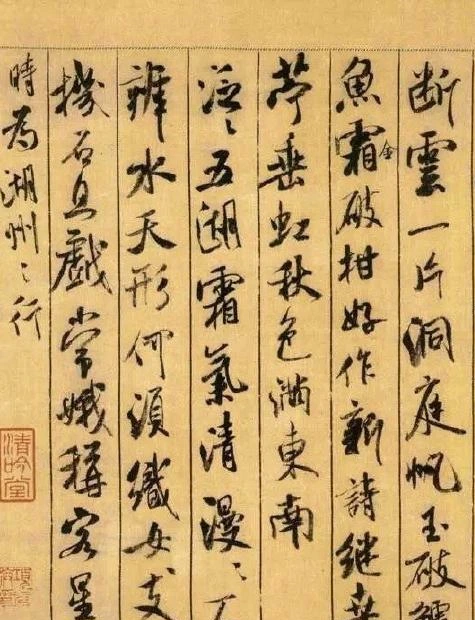 斷雲一片洞庭帆玉破鱸
魚霜金破柑好作新詩継桑
苧垂虹秋色滿東南
泛〻五湖霜氣清漫〻不
辨水天形何須織女支
機石且戲常娥稱客星
時為湖州之行
清吟堂